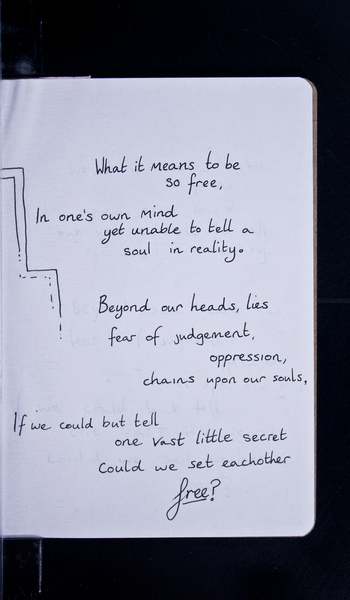 What it means to be
so free,
In one's own mind
yet unable to tell a
soul in reality.
Beyond our heads, lies
fear of judgement,
oppression,
chains upon our souls,
If we could but tell
one vast little secret
Could we set eachother
free?